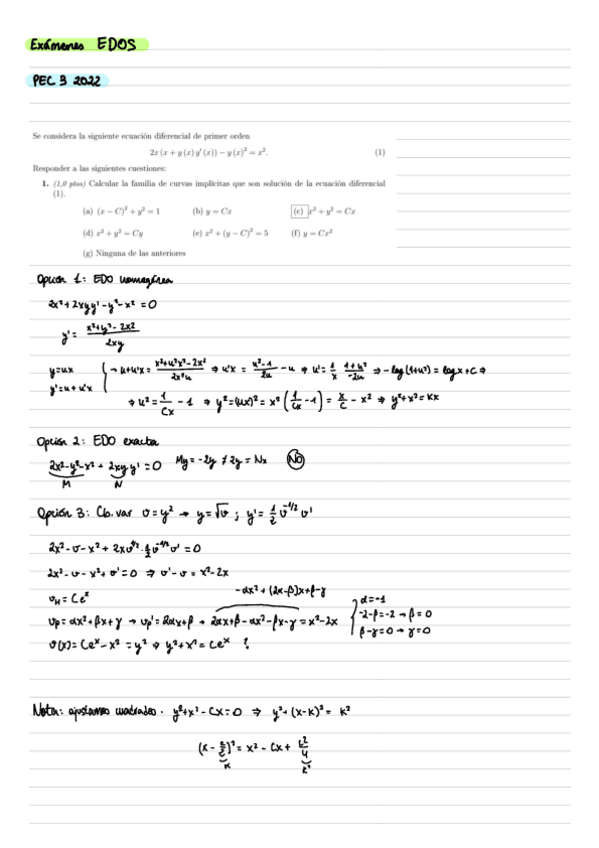 Exámenes EDOS
PEC 3 2022
Se considera la siguiente ecuación diferencial de primer orden
2x (x + y (x) y′ (x)) − y (x)² = x². (1)
Responder a las siguientes cuestiones:
1. (1,0 ptos) Calcular la familia de curvas implícitas que son solución de la ecuación diferencial
(1).
(a) (x − C)² + y² = 1 (b) y = Cx (c) x² + y² = Cx
(d) x² + y² = Cy (e) x² + (y − C)² = 5 (f) y = Cx²
(g) Ninguna de las anteriores
Opción 1: EDO homogénea
2x² + 2xyy' - y² - x² = 0
y' = x² + y² - 2x² / 2xy
y = ux → u + u'x = x² + u²x² - 2x² / 2x²u ⇒ u'x = u² - 1 / 2u - u ⇒ u' = 1/x · 1 + u² / -2u ⇒ - log (1+u²) = log x + C ⇒
y' = u + u'x
⇒ u² = 1/Cx - 1 ⇒ y² = (ux)² = x² (1/Cx - 1) = x/C - x² ⇒ y² + x² = Kx
Opción 2: EDO exacta
2x² - y² - x² + 2xy y' = 0 My = -2y ≠ 2y = Nx NO
M N
Opción 3: Cb. var v = y² → y = √v ; y' = 1/2 v^-1/2 v'
2x² - v - x² + 2x v^1/2 · 1/2 v^-1/2 v' = 0
2x² - v - x² + v' = 0 ⇒ v' - v = x² - 2x
-αx² + (2α - β)x + β - γ
v_H = Ce^x
α = -1
v_p = αx² + βx + γ → v_p' = 2αx + β → 2αx + β - αx² - βx - γ = x² - 2x
-2 - β = -2 → β = 0
β - γ = 0 → γ = 0
v(x) = Ce^x - x² = y² ⇒ y² + x² = Ce^x ?
Nota: ajustamos cuadrados. y² + x² - Cx = 0 ⇒ y² + (x - K)² = K²
(x - C/2)² = x² - Cx + C²/4
K K²